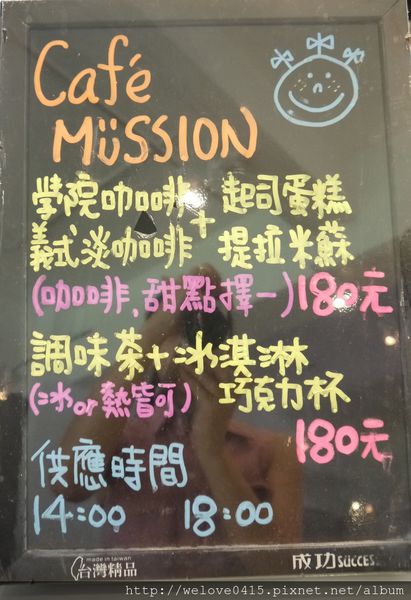 Café
MüSSION
學院咖啡 + 起司蛋糕
義式淡咖啡 提拉米蘇
(咖啡,甜點擇一)180元
調味茶+冰淇淋
(冰or熱皆可) 巧克力杯
180元
供應時間
14:00 18:00
made in taiwan
台灣精品 成功 SUCCESS
http://welove0415.pixnet.net/album